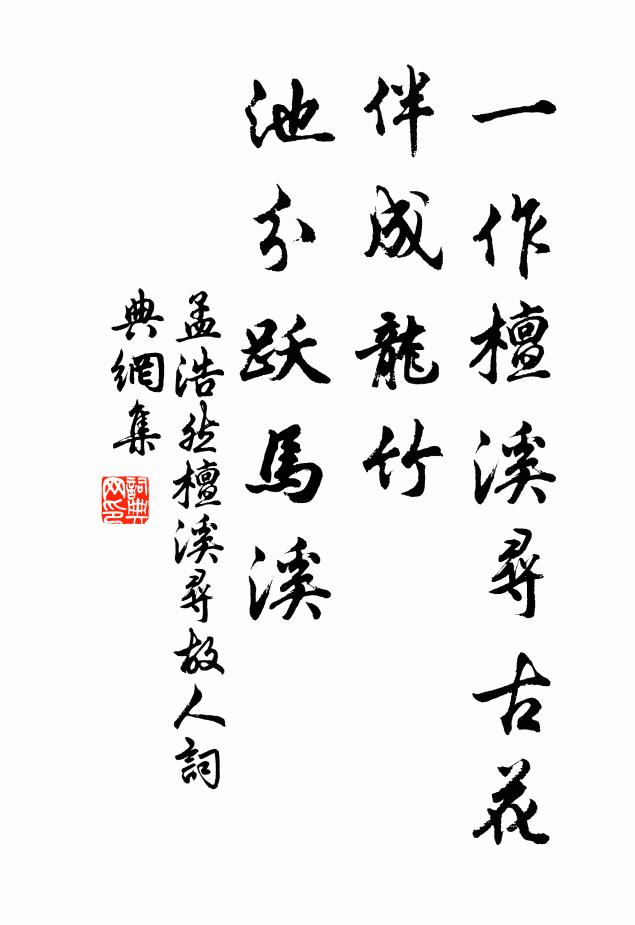 一作檀溪尋古花
伴成龍竹
池分跃馬溪
孟浩然檀溪尋故人詞
典網集
詞典
网印